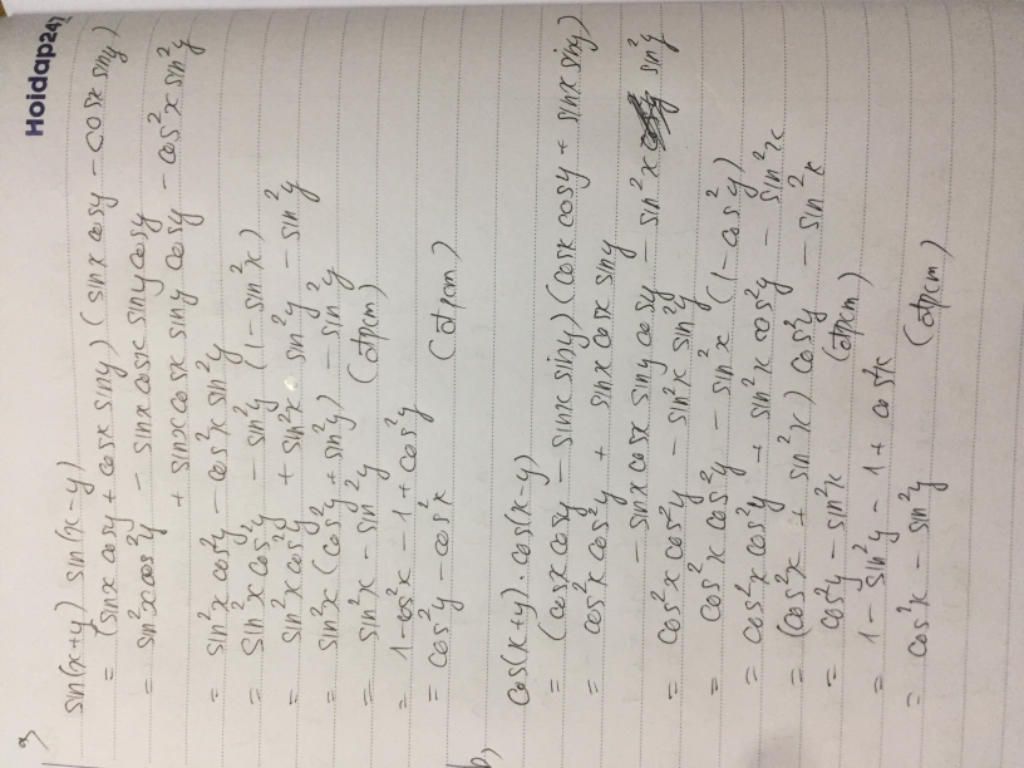 Hoidap247
a,
sin(x+y) sin(x-y)
= (sinx cosy + cosx siny) (sinx cosy - cosx siny)
= sin²x cos²y - sinx cosx siny cosy
+ sinx cosx siny cosy - cos²x sin²y
= sin²x cos²y - cos²x sin²y
= sin²x cos²y - sin²y (1 - sin²x)
= sin²x cos²y + sin²x sin²y - sin²y
= sin²x (cos²y + sin²y) - sin²y
= sin²x - sin²y (đpcm)
= 1 - cos²x - 1 + cos²y
= cos²y - cos²x (đpcm)
b,
cos(x+y).cos(x-y)
= (cosx cosy - sinx siny) (cosx cosy + sinx siny)
= cos²x cos²y + sinx cosx siny
- sinx cosx siny cosy - sin²x sin²y
= cos²x cos²y - sin²x sin²y
= cos²x cos²y - sin²x (1 - cos²y)
= cos²x cos²y + sin²x cos²y - sin²x
= (cos²x + sin²x) cos²y - sin²x
= cos²y - sin²x (đpcm)
= 1 - sin²y - 1 + cos²x
= cos²x - sin²y (đpcm)